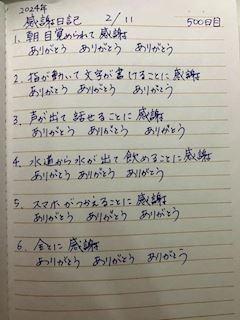 2024年
感謝日記 2/11 500日目
1、朝目覚められて感謝
ありがとう ありがとう ありがとう
2、指が動いて文字が書けることに感謝
ありがとう ありがとう ありがとう
3、声が出て話せることに感謝
ありがとう ありがとう ありがとう
4、水道から水が出て飲めることに感謝
ありがとう ありがとう ありがとう
5、スマホがつかえることに感謝
ありがとう ありがとう ありがとう
6、全てに感謝
ありがとう ありがとう ありがとう